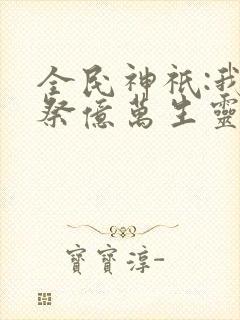 全民神祇:我
祭億萬生靈
寶寶淳-